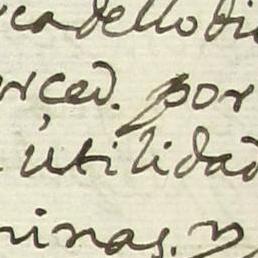 cadellodi
rced. por
utilidad
inas. y